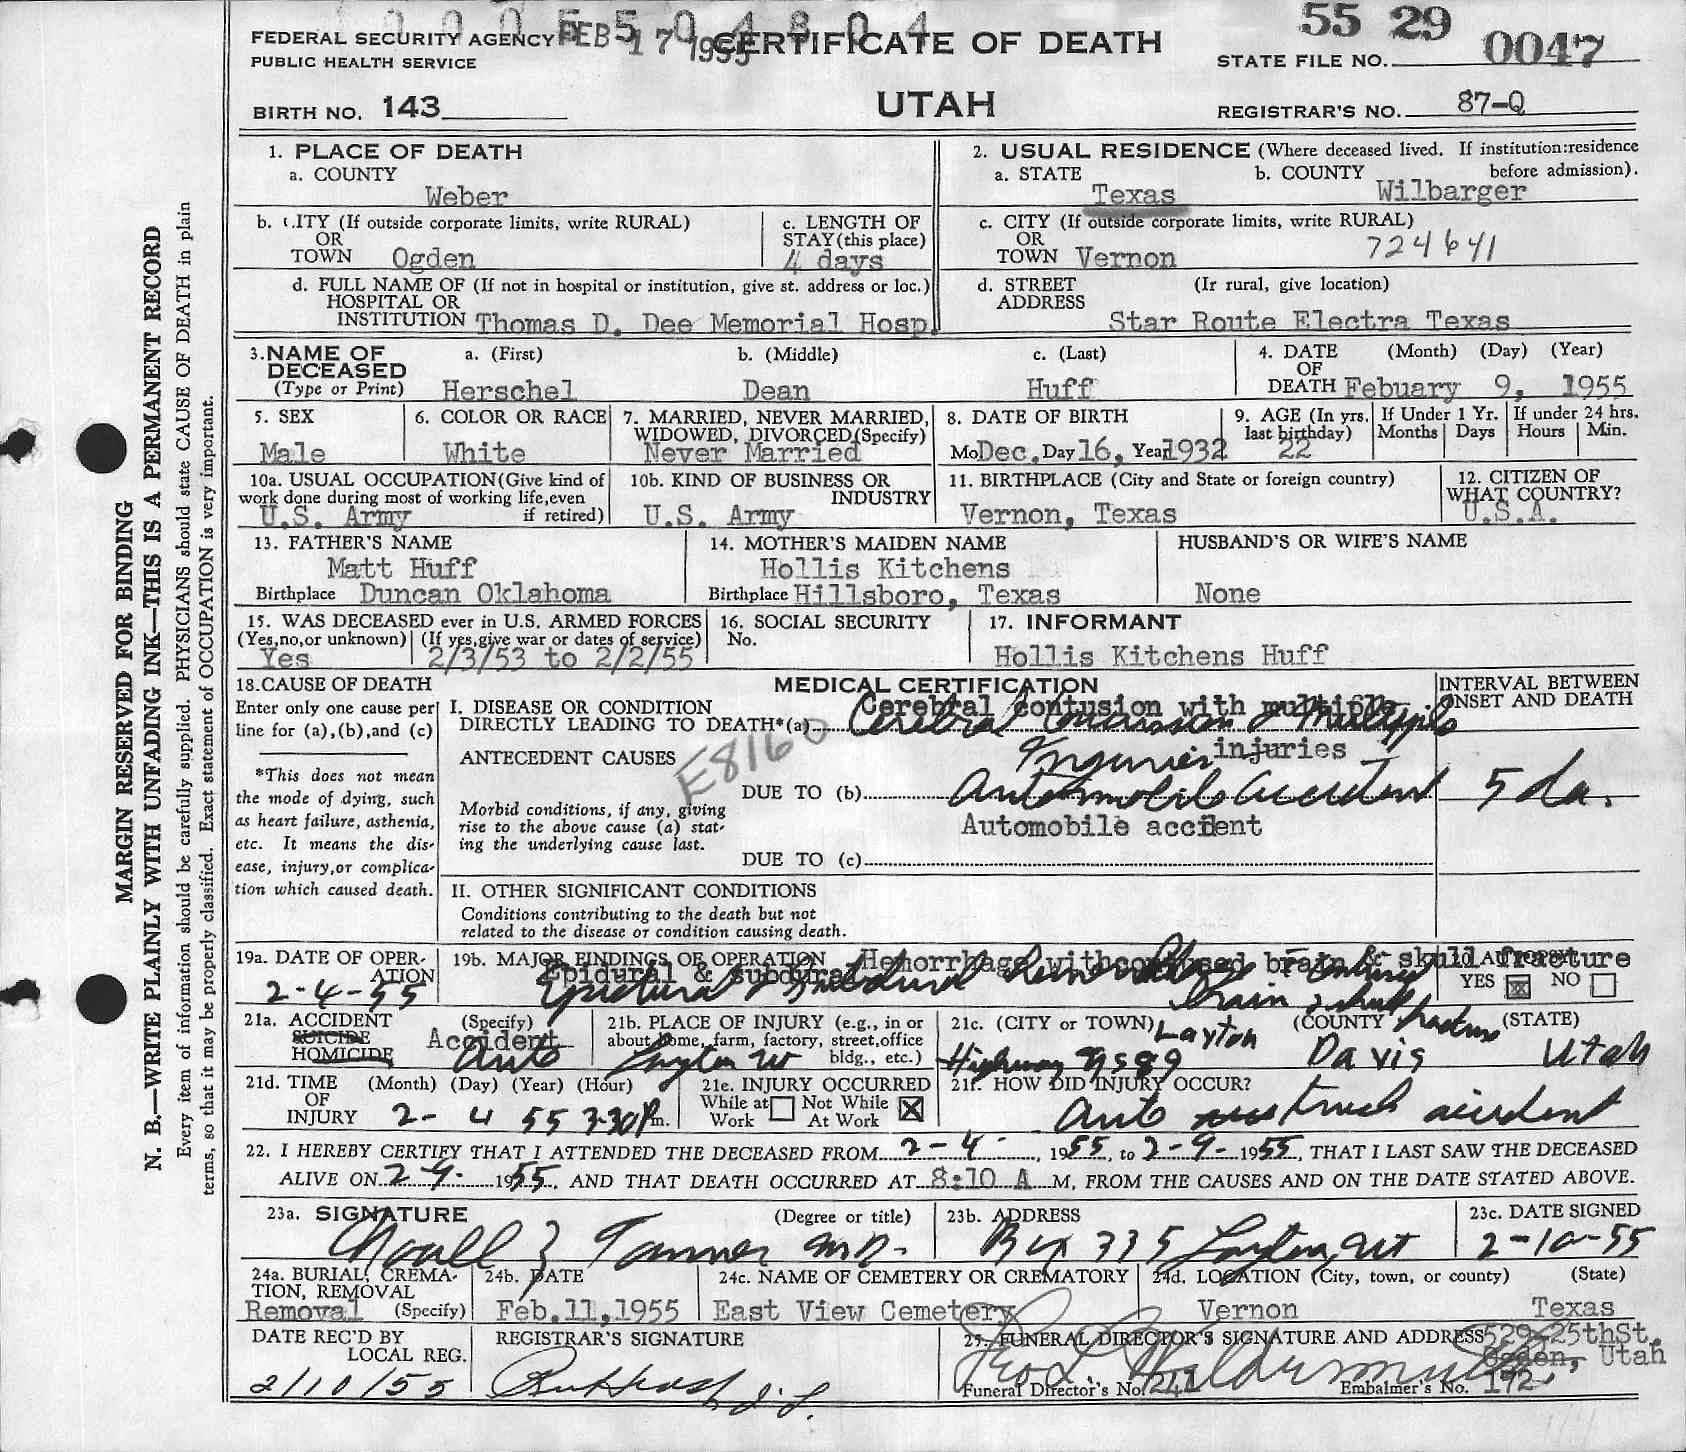 0005504804
FEDERAL SECURITY AGENCY FEB 17 1955 CERTIFICATE OF DEATH 55 29
PUBLIC HEALTH SERVICE STATE FILE NO. 0047
BIRTH NO. 143 UTAH REGISTRAR'S NO. 87-Q
1. PLACE OF DEATH
a. COUNTY
Weber
2. USUAL RESIDENCE (Where deceased lived. If institution:residence before admission).
a. STATE b. COUNTY
Texas Wilbarger
b. CITY (If outside corporate limits, write RURAL)
OR
TOWN Ogden
c. LENGTH OF
STAY (this place)
4 days
c. CITY (If outside corporate limits, write RURAL)
OR
TOWN Vernon 724641
d. FULL NAME OF (If not in hospital or institution, give st. address or loc.)
HOSPITAL OR
INSTITUTION Thomas D. Dee Memorial Hosp.
d. STREET (Ir rural, give location)
ADDRESS
Star Route Electra Texas
3. NAME OF DECEASED a. (First) b. (Middle) c. (Last)
(Type or Print) Herschel Dean Huff
4. DATE (Month) (Day) (Year)
OF
DEATH Febuary 9, 1955
5. SEX
Male
6. COLOR OR RACE
White
7. MARRIED, NEVER MARRIED,
WIDOWED, DIVORCED (Specify)
Never Married
8. DATE OF BIRTH
Mo Dec. Day 16, Year 1932
9. AGE (In yrs. last birthday)
22
If Under 1 Yr.
Months Days
If under 24 hrs.
Hours Min.
10a. USUAL OCCUPATION (Give kind of
work done during most of working life, even
if retired)
U.S. Army
10b. KIND OF BUSINESS OR
INDUSTRY
U.S. Army
11. BIRTHPLACE (City and State or foreign country)
Vernon, Texas
12. CITIZEN OF
WHAT COUNTRY?
U.S.A.
13. FATHER'S NAME
Matt Huff
Birthplace Duncan Oklahoma
14. MOTHER'S MAIDEN NAME
Hollis Kitchens
Birthplace Hillsboro, Texas
HUSBAND'S OR WIFE'S NAME
None
15. WAS DECEASED ever in U.S. ARMED FORCES
(Yes,no,or unknown) (If yes,give war or dates of service)
Yes 2/3/53 to 2/2/55
16. SOCIAL SECURITY
No.
17. INFORMANT
Hollis Kitchens Huff
18. CAUSE OF DEATH
Enter only one cause per
line for (a),(b),and (c)
*This does not mean
the mode of dying, such
as heart failure, asthenia,
etc. It means the dis-
ease, injury,or complica-
tion which caused death.
MEDICAL CERTIFICATION
I. DISEASE OR CONDITION Cerebral contusion with multiple
DIRECTLY LEADING TO DEATH*(a) Cerebral Concussion & Multiple
Injuries injuries
ANTECEDENT CAUSES E8160
Morbid conditions, if any, giving
rise to the above cause (a) stat-
ing the underlying cause last.
DUE TO (b) Automobile accident
Automobile accident
DUE TO (c)
INTERVAL BETWEEN
ONSET AND DEATH
5 da.
II. OTHER SIGNIFICANT CONDITIONS
Conditions contributing to the death but not
related to the disease or condition causing death.
19a. DATE OF OPER-
ATION
2-4-55
19b. MAJOR FINDINGS OF OPERATION Hemorrhage with contused brain & skull fracture
Epidural & subdural
Epidural & Subdural hemorrhage contused
brain & skull fracture
20. AUTOPSY
YES NO
21a. ACCIDENT (Specify)
SUICIDE Accident
HOMICIDE Auto
21b. PLACE OF INJURY (e.g., in or
about home, farm, factory, street,office
bldg., etc.)
21c. (CITY or TOWN) (COUNTY) (STATE)
Layton
Highway US 89 Davis Utah
21d. TIME (Month) (Day) (Year) (Hour)
OF
INJURY 2- 4 55 3:30 P m.
21e. INJURY OCCURRED
While at Work Not While At Work
21f. HOW DID INJURY OCCUR?
Auto truck accident
22. I HEREBY CERTIFY THAT I ATTENDED THE DECEASED FROM 2-4-, 1955, to 2-9- 1955, THAT I LAST SAW THE DECEASED
ALIVE ON 2-9- 1955, AND THAT DEATH OCCURRED AT 8:10 A M, FROM THE CAUSES AND ON THE DATE STATED ABOVE.
23a. SIGNATURE (Degree or title)
Noall Z Tanner MD.
23b. ADDRESS
Box 335 Layton, Ut
23c. DATE SIGNED
2-10-55
24a. BURIAL, CREMA-
TION, REMOVAL
Removal (Specify)
24b. DATE
Feb.11,1955
24c. NAME OF CEMETERY OR CREMATORY
East View Cemetery
24d. LOCATION (City, town, or county) (State)
Vernon Texas
DATE REC'D BY
LOCAL REG.
2/10/55
REGISTRAR'S SIGNATURE
25. FUNERAL DIRECTOR'S SIGNATURE AND ADDRESS 529-25thSt.
Ogden, Utah
Funeral Director's No. 241 Embalmer's No. 172
MARGIN RESERVED FOR BINDING
N. B.—WRITE PLAINLY WITH UNFADING INK—THIS IS A PERMANENT RECORD
Every item of information should be carefully supplied. PHYSICIANS should state CAUSE OF DEATH in plain
terms, so that it may be properly classified. Exact statement of OCCUPATION is very important.